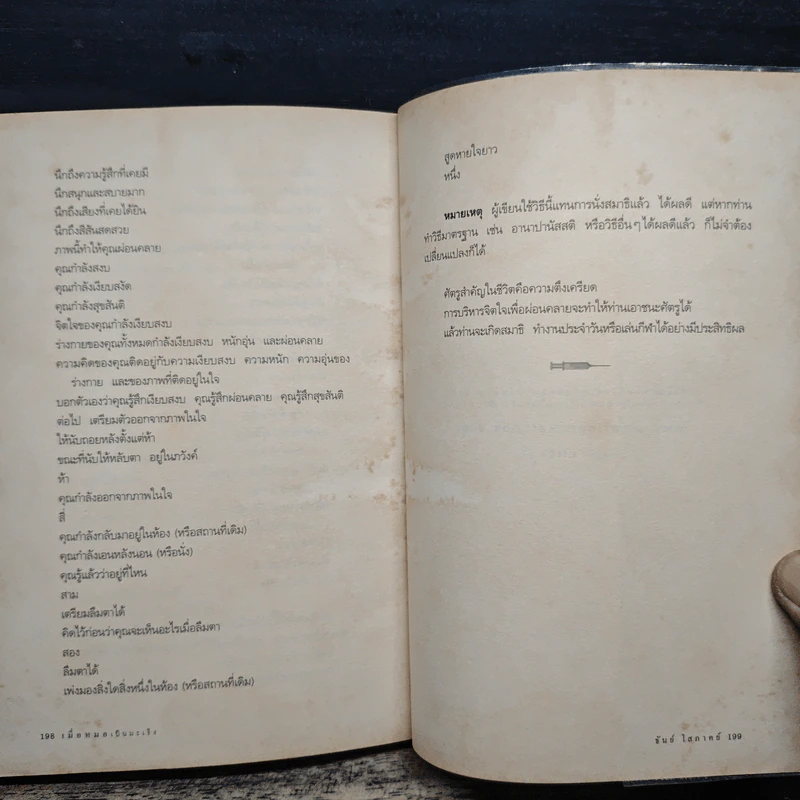 นึกถึงความรู้สึกที่เคยมี
นึกสนุกและสบายมาก
นึกถึงเสียงที่เคยได้ยิน
นึกถึงสีสันสดสวย
ภาพนี้ทำให้คุณผ่อนคลาย
คุณกำลังสงบ
คุณกำลังเงียบสงัด
คุณกำลังสุขสันติ
จิตใจของคุณกำลังเงียบสงบ
ร่างกายของคุณทั้งหมดกำลังเงียบสงบ หนักอุ่น และผ่อนคลาย
ความคิดของคุณติดอยู่กับความเงียบสงบ ความหนัก ความอุ่นของ
ร่างกาย และของภาพที่ติดอยู่ในใจ
บอกตัวเองว่าคุณรู้สึกเงียบสงบ คุณรู้สึกผ่อนคลาย คุณรู้สึกสุขสันติ
ต่อไป เตรียมตัวออกจากภาพในใจ
ให้นับถอยหลังตั้งแต่ห้า
ขณะที่นับให้หลับตา อยู่ในภวังค์
ห้า
คุณกำลังออกจากภาพในใจ
สี่
คุณกำลังกลับมาอยู่ในห้อง (หรือสถานที่เดิม)
คุณกำลังเอนหลังนอน (หรือนั่ง)
คุณรู้แล้วว่าอยู่ที่ไหน
สาม
เตรียมลืมตาได้
คิดไว้ก่อนว่าคุณจะเห็นอะไรเมื่อลืมตา
สอง
ลืมตาได้
เพ่งมองสิ่งใดสิ่งหนึ่งในห้อง (หรือสถานที่เดิม)
198 เมื่อหมอเป็นมะเร็ง
สูดหายใจยาว
หนึ่ง
หมายเหตุ ผู้เขียนใช้วิธีนี้แทนการนั่งสมาธิแล้ว ได้ผลดี แต่หากท่าน
ทำวิธีมาตรฐาน เช่น อานาปานัสสติ หรือวิธีอื่นๆ ได้ผลดีแล้ว ก็ไม่จำต้อง
เปลี่ยนแปลงก็ได้
ศัตรูสำคัญในชีวิตคือความตึงเครียด
การบริหารจิตใจเพื่อผ่อนคลายจะทำให้ท่านเอาชนะศัตรูได้
แล้วท่านจะเกิดสมาธิ ทำงานประจำวันหรือเล่นกีฬาได้อย่างมีประสิทธิผล
ชันย์ โสภาคย์ 199